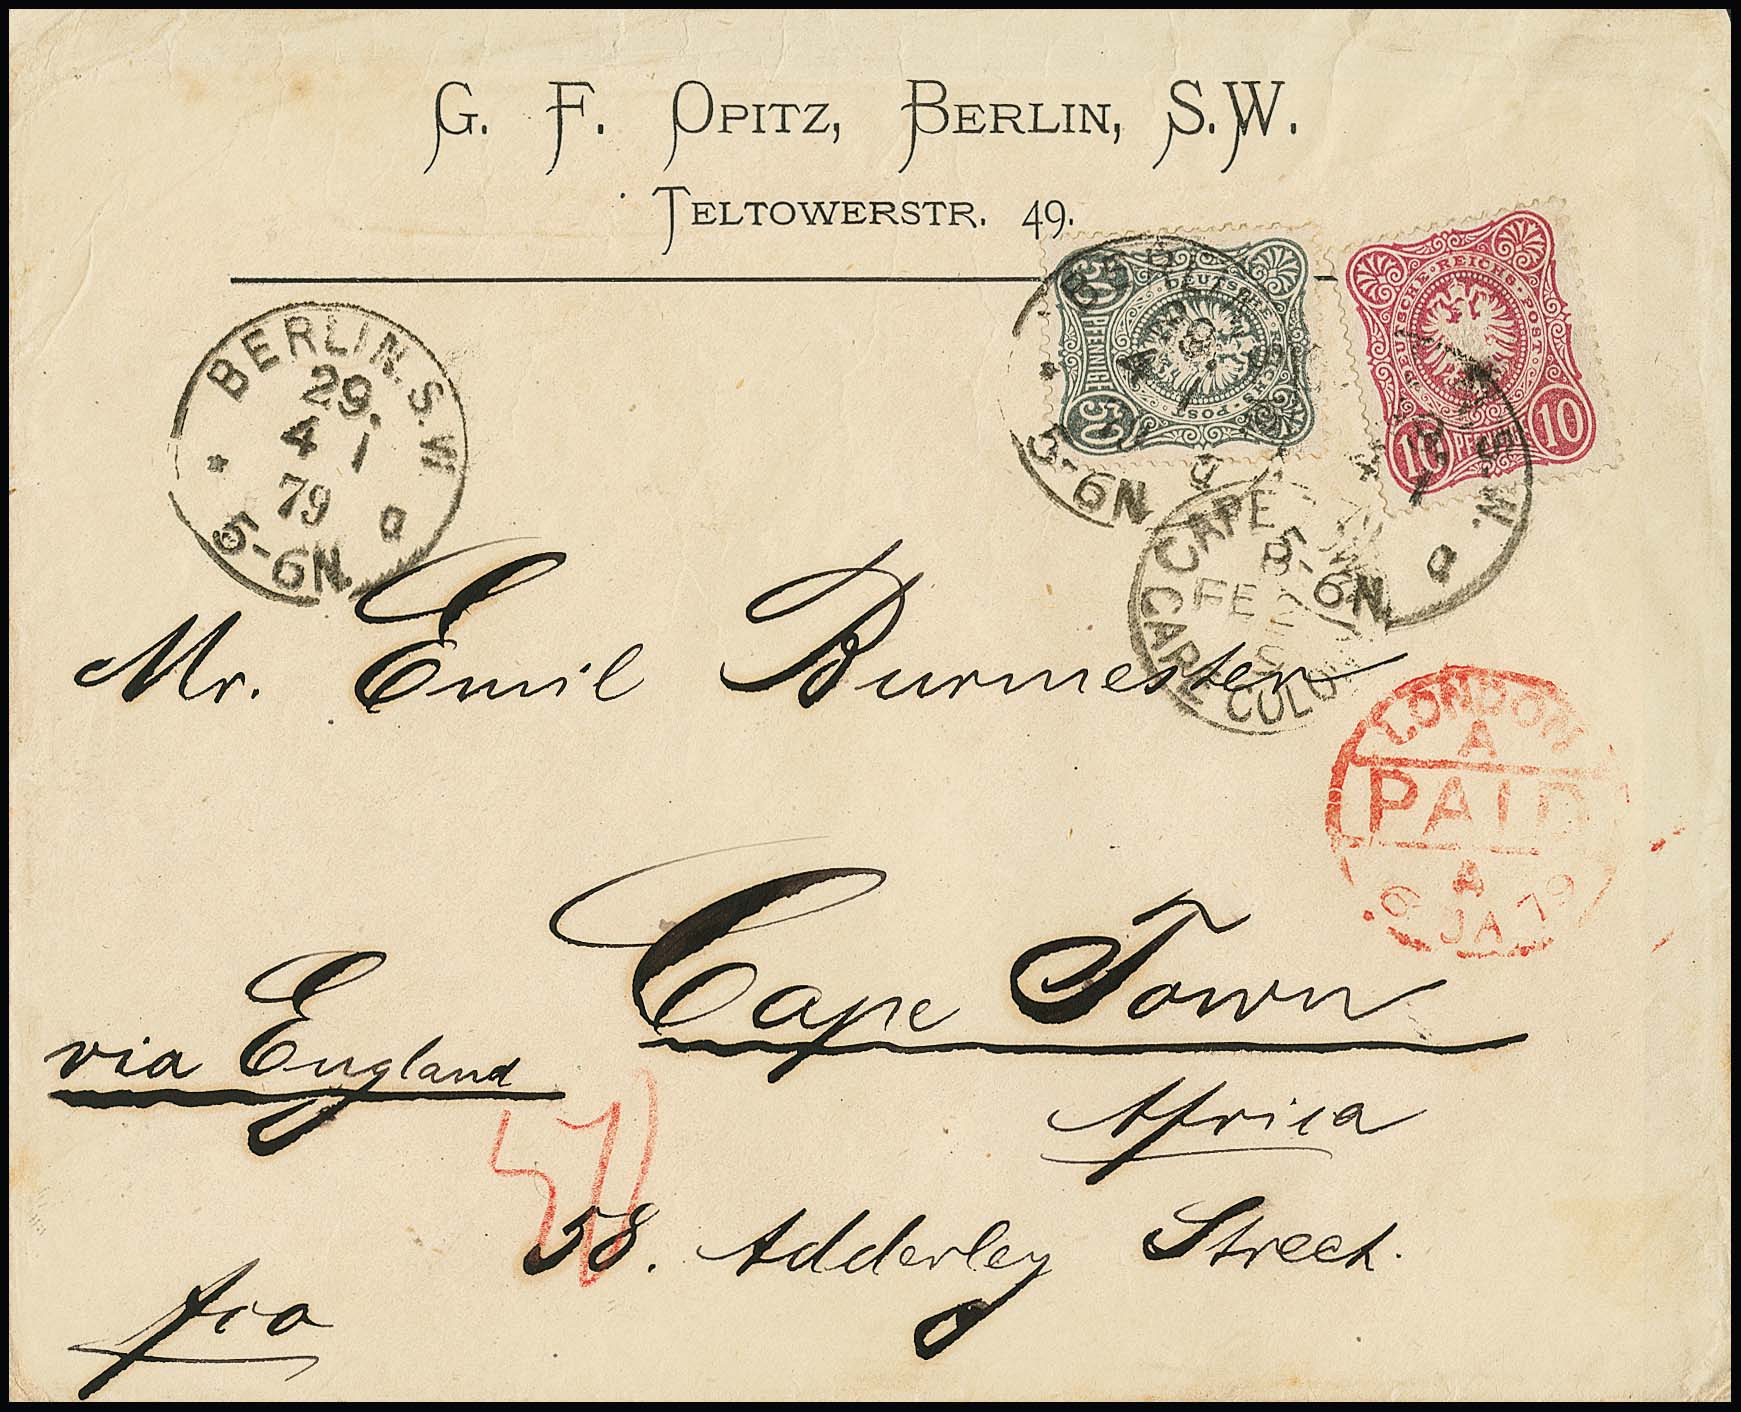 G. F. OPITZ, BERLIN, S.W.
TELTOWERSTR. 49.
BERLIN. S.W
29.
4 1
79
* a
5-6N.
50
DEUTSCHE REICHS-POST
PFENNIGE
50
* 5-6N
DEUTSCHE REICHS-POST
10 PFENNIG 10
S.W.
* a
5-6N.
CAPE
FE 2
Mr. Emil Burmester
LONDON
A
PAID
A
6 JA 79
Cape Town
via England
Africa
50
58. Adderley Street.
fco